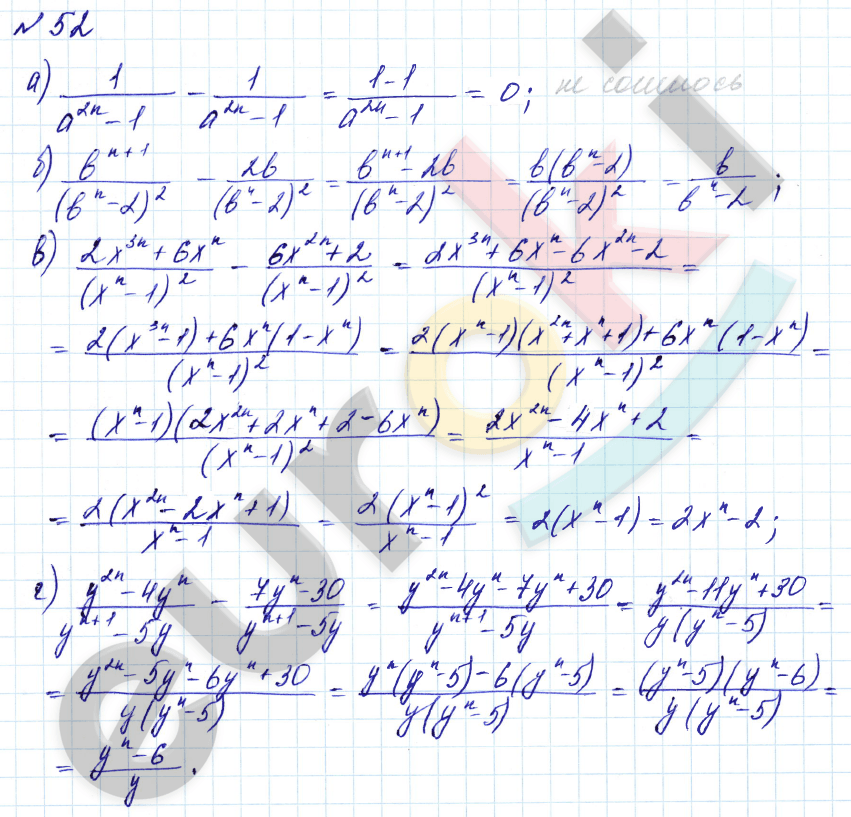 №52
а) \frac{1}{a^{2n}-1} - \frac{1}{a^{2n}-1} = \frac{1-1}{a^{2n}-1} = 0; не сошлось
б) \frac{b^{n+1}}{(b^n-2)^2} - \frac{2b}{(b^n-2)^2} = \frac{b^{n+1}-2b}{(b^n-2)^2} = \frac{b(b^n-2)}{(b^n-2)^2} = \frac{b}{b^n-2};
в) \frac{2x^{3n}+6x^n}{(x^n-1)^2} - \frac{6x^{2n}+2}{(x^n-1)^2} = \frac{2x^{3n}+6x^n-6x^{2n}-2}{(x^n-1)^2} =
= \frac{2(x^{3n}-1)+6x^n(1-x^n)}{(x^n-1)^2} = \frac{2(x^n-1)(x^{2n}+x^n+1)+6x^n(1-x^n)}{(x^n-1)^2} =
= \frac{(x^n-1)(2x^{2n}+2x^n+2-6x^n)}{(x^n-1)^2} = \frac{2x^{2n}-4x^n+2}{x^n-1} =
= \frac{2(x^{2n}-2x^n+1)}{x^n-1} = \frac{2(x^n-1)^2}{x^n-1} = 2(x^n-1) = 2x^n-2;
г) \frac{y^{2n}-4y^n}{y^{n+1}-5y} - \frac{7y^n-30}{y^{n+1}-5y} = \frac{y^{2n}-4y^n-7y^n+30}{y^{n+1}-5y} = \frac{y^{2n}-11y^n+30}{y(y^n-5)} =
= \frac{y^{2n}-5y^n-6y^n+30}{y(y^n-5)} = \frac{y^n(y^n-5)-6(y^n-5)}{y(y^n-5)} = \frac{(y^n-5)(y^n-6)}{y(y^n-5)} =
= \frac{y^n-6}{y}.
euroki